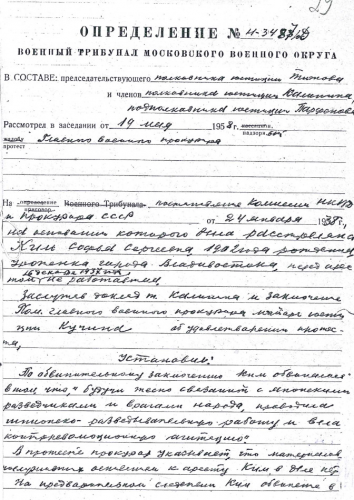 ОПРЕДЕЛЕНИЕ № Н-34
ВОЕННЫЙ ТРИБУНАЛ МОСКОВСКОГО ВОЕННОГО ОКРУГА
В СОСТАВЕ: председательствующего полковника юстиции Титова
и членов полковника юстиции Калинина
подполковника юстиции
Рассмотрел в заседании от 19 мая 1958 г.
Главного военного прокурора
протест
На Военного Трибунала, постановление Комиссии НКВД
и прокурора СССР от 24 января 1938 г.,
на основании которого была расстреляна
Ким Софья Сергеевна, 1902 года рождения,
уроженка города Владивостока, перед арес-
том не работавшая
Заслушав доклад т. Калинина и заключение
Пом. главного военного прокурора майора юсти-
ции об удовлетворении протес-
та,
Установил:
По обвинительному заключению Ким обвинялась
в том, что, "будучи тесно связанной с японскими
разведчиками и врагами народа, проводила
шпионско-разведывательную работу и вела
контрреволюционную агитацию".
В протесте прокурор указывает, что материалов,
послуживших к аресту Ким в деле нет.
На предварительном следствии Ким в